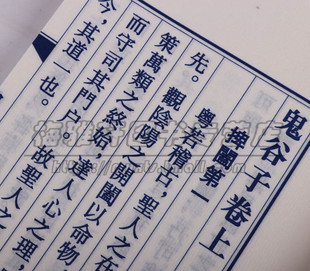 鬼谷子卷上
捭闔第一
粵若稽古，聖人之在
先。觀陰陽之開闔以命物，
策萬類之終始，達人心之理，
而守司其門户。故聖人之
今，其道一也。